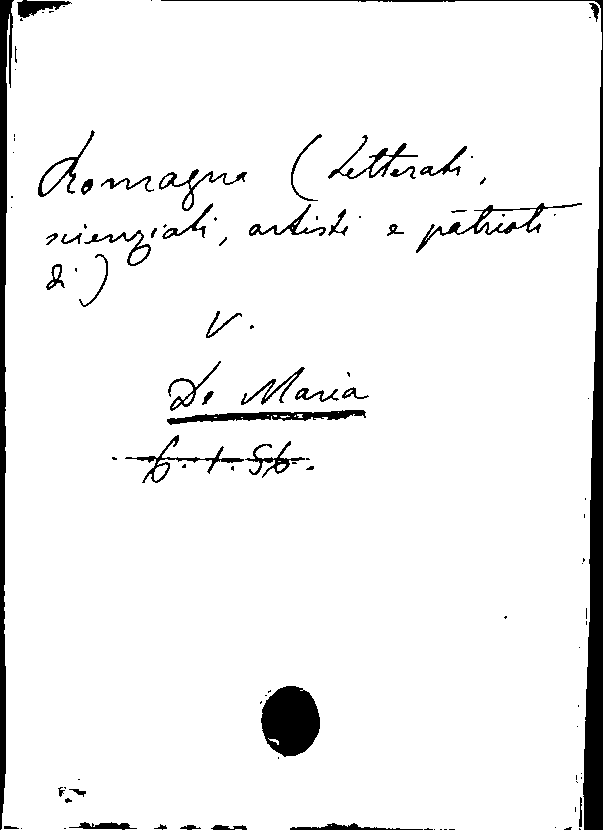 Romagna (Letterati,
scienziati, artisti e patrioti
di)
V.
De Maria
6.1.56.